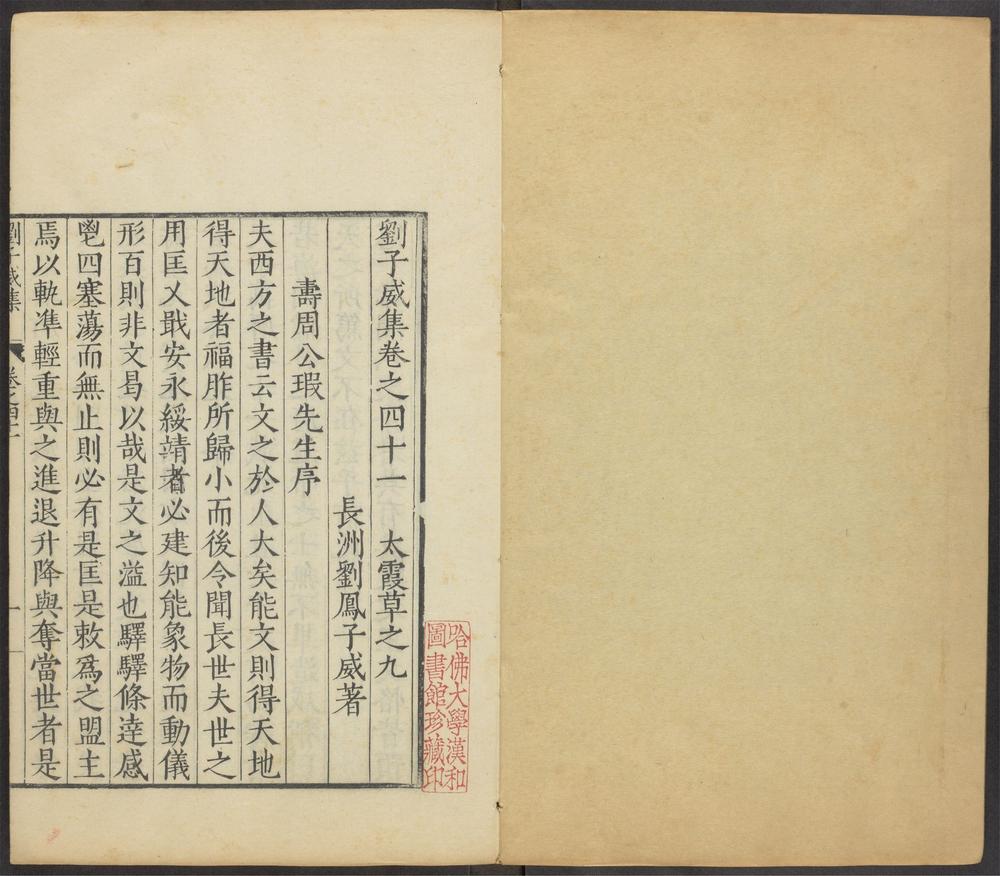 劉子威集卷之四十一　太霞草之九
長洲劉鳳子威著
壽周公瑕先生序
夫西方之書云文之於人大矣能文則得天地
得天地者福胙所歸小而後令聞長世夫世之
用匡乂戢安永綏靖者必建知能象物而動儀
形百則非文曷以哉是文之溢也驛驛條達感
鬯四塞蕩而無止則必有是匡是敕爲之盟主
焉以軌準輕重與之進退升降與奪當世者是
劉子威集
卷之四十一
一
哈佛大學漢和
圖書館珍藏印